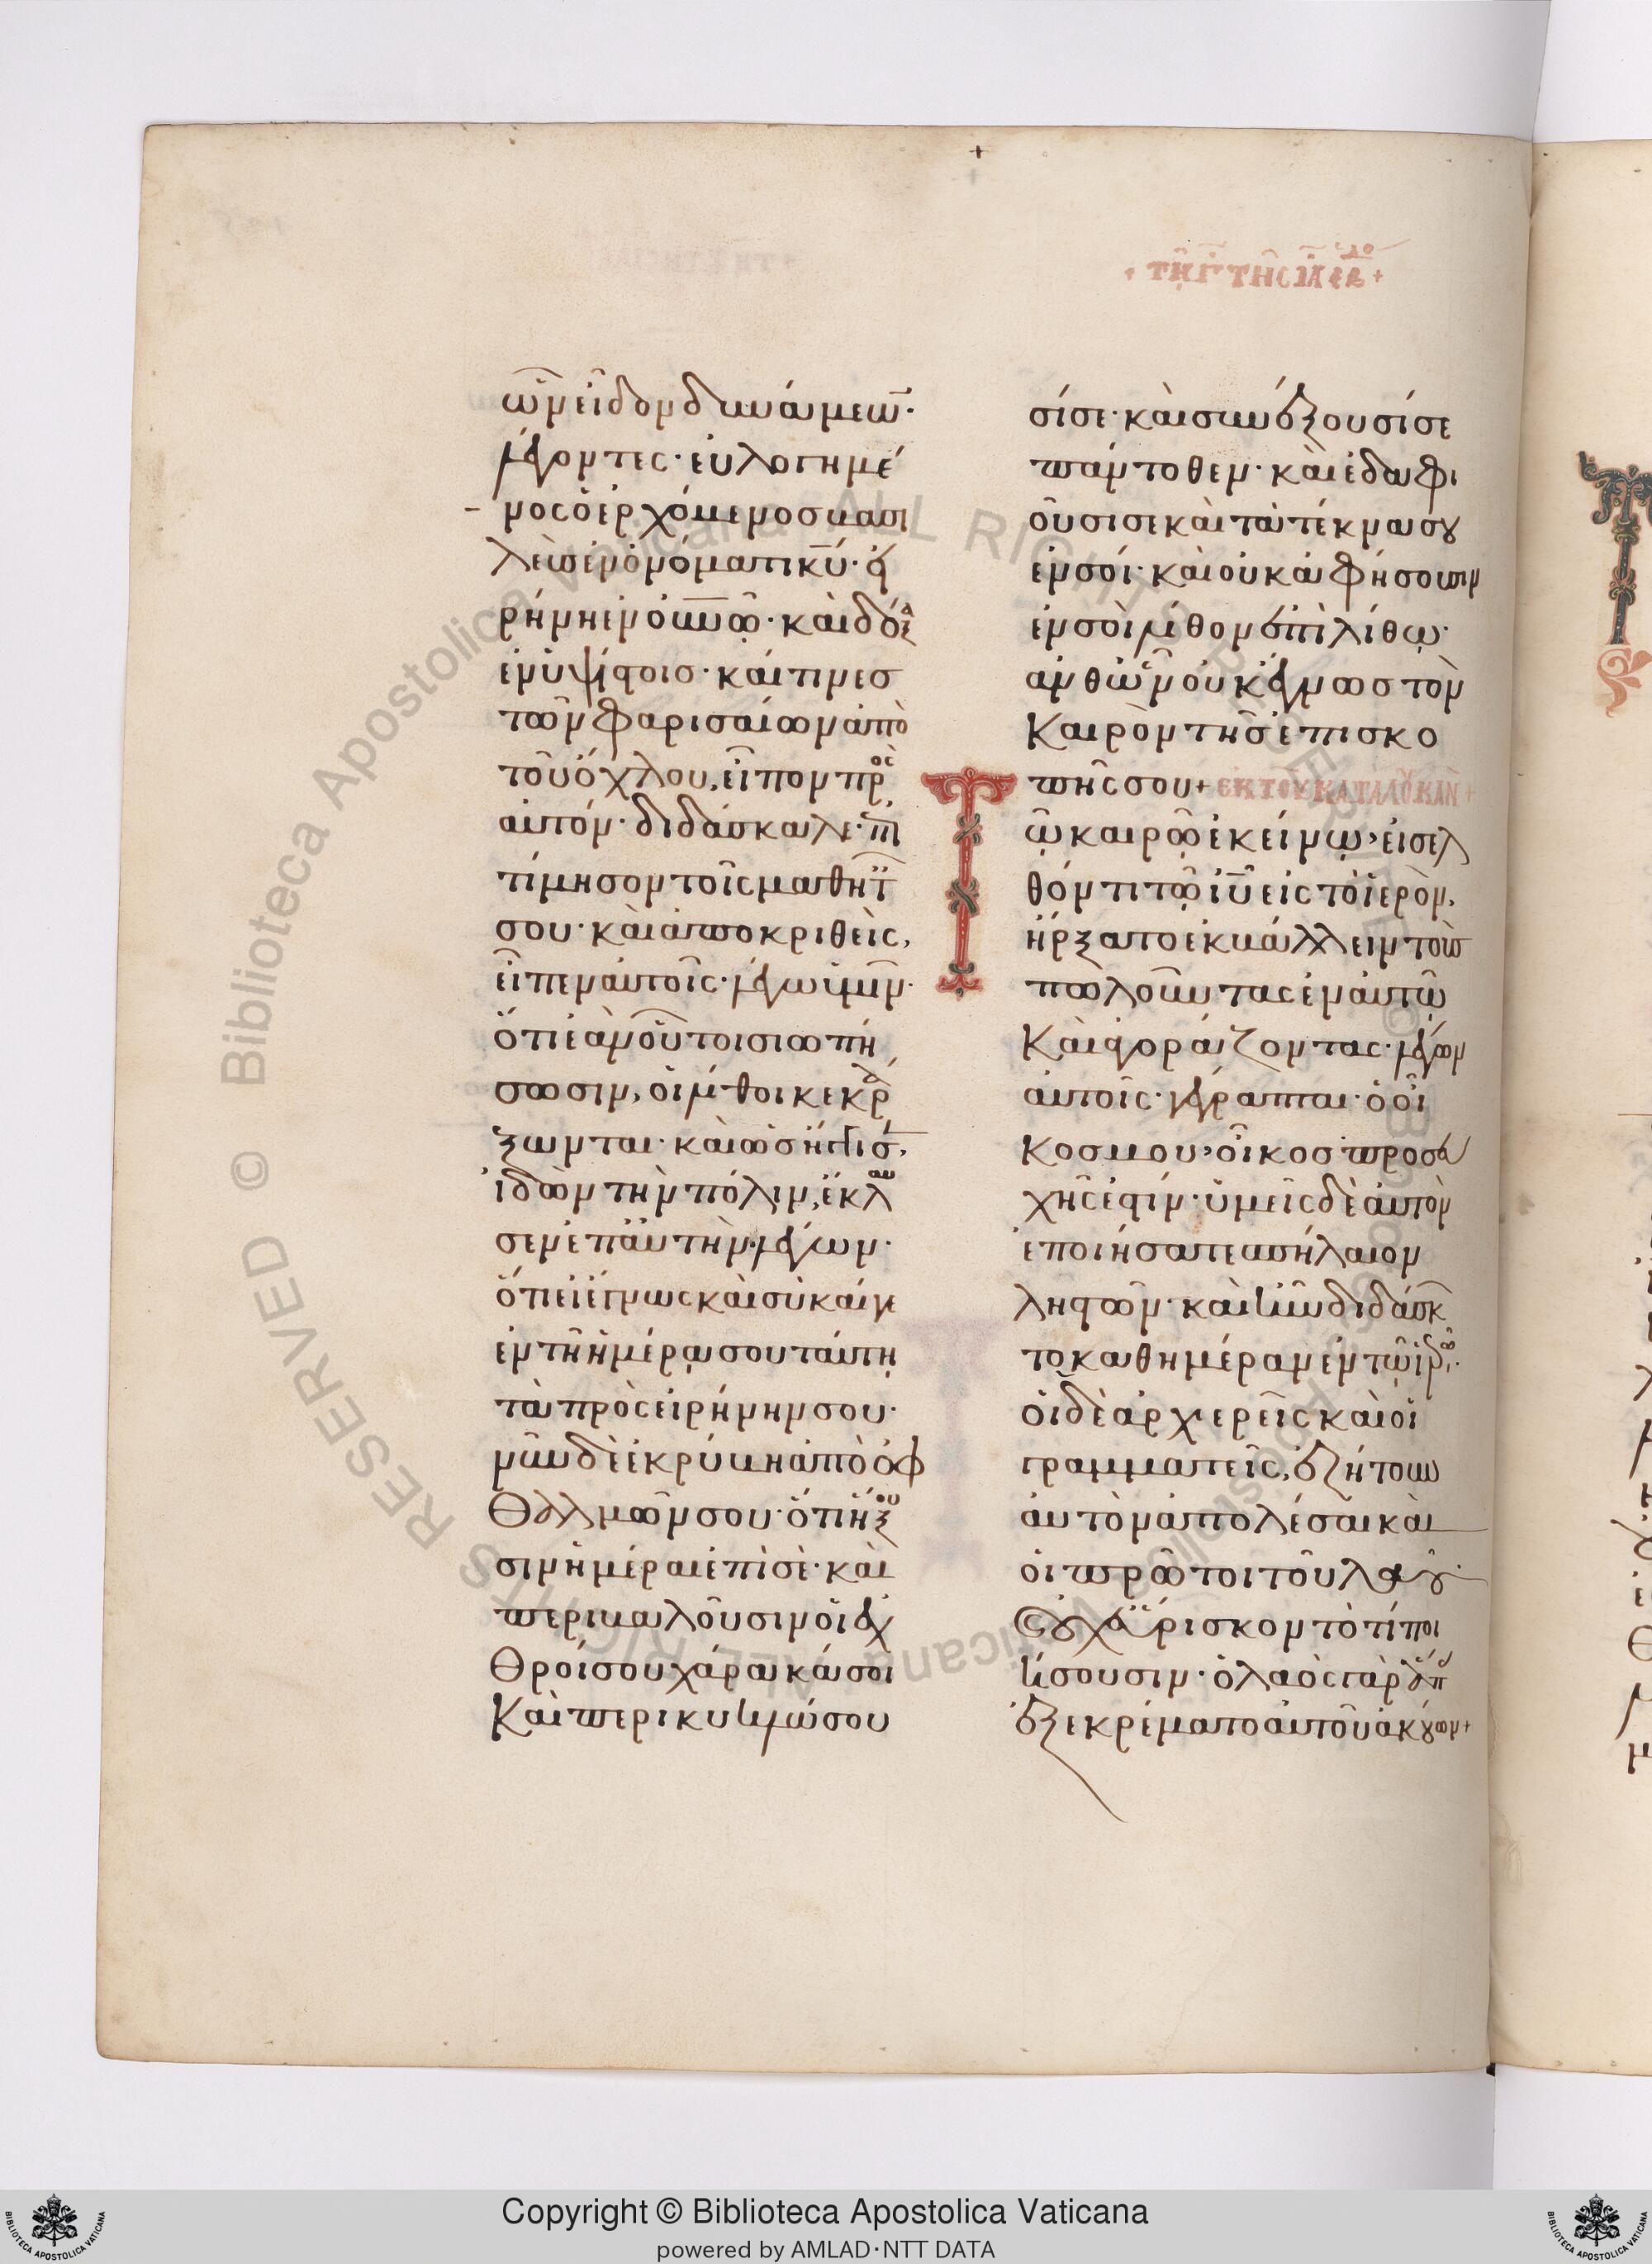 + τῆ γ τῆς ιλ ἑβδο +
ὧν εἶδον δυνάμεων·
λέγοντες· εὐλογημέ
νος ὁ ἐρχόμενος βασι
λεὺς ἐν ὀνόματι κ̅υ̅· εἰ
ρήνη ἐν ο̅υ̅ν̅ω̅· καὶ δόξα
ἐν ὑψίστοις· καί τινες
τῶν φαρισαίων ἀπὸ
τοῦ ὄχλου, εἶπον πρὸς
αὐτόν· διδάσκαλε· ἐπι
τίμησον τοῖς μαθηταῖς
σου· καὶ ἀποκριθεὶς,
εἶπεν αὐτοῖς· λέγω ὑμῖν·
ὅτι ἐὰν οὗτοι σιωπή
σωσιν, οἱ λίθοι κεκρά
ξωνται· καὶ ὡς ἤγγισεν,
ἰδὼν τὴν πόλιν, ἔκλαυ
σεν ἐπ' αὐτὴν· λέγων·
ὅτι εἰ ἔγνως καὶ σὺ καίγε
ἐν τῆ ἡμέρα σου ταύτη
τὰ πρὸς εἰρήνην σου·
νῦν δὲ ἐκρύβη ἀπὸ ὀφ
θαλμῶν σου· ὅτι ἥξου
σιν ἡμέραι ἐπὶ σὲ· καὶ
περιβαλοῦσιν οἱ ἐχ
θροί σου χάρακά σοι
καὶ περικυκλώσου
σί σε· καὶ συνέξουσί σε
πάντοθεν· καὶ ἐδαφι
οῦσί σε καὶ τὰ τέκνα σου
ἐν σοί· καὶ οὐκ ἀφήσουσιν
ἐν σοὶ λίθον ἐπὶ λίθω·
ἀνθ' ὧν οὐκ ἔγνως τὸν
καιρὸν τῆς ἐπισκο
πῆς σου + ἐκ τοῦ κατὰ λουκᾶν +
Τῶ καιρῶ ἐκείνω, εἰσελ
θόντι τῶ ι̅υ̅ εἰς τὸ ἱερὸν,
ἤρξατο ἐκβάλλειν τοὺς
πωλοῦντας ἐν αὐτῶ
καὶ ἀγοράζοντας· λέγων
αὐτοῖς· γέγραπται· ὁ οἶ
κος μου, οἶκος προσευ
χῆς ἐστίν· ὑμεῖς δὲ αὐτὸν
ἐποιήσατε σπήλαιον
ληστῶν· καὶ ἦν διδάσκων
τὸ καθημέραν ἐν τῶ ἱερῶ·
οἱ δὲ ἀρχιερεῖς καὶ οἱ
γραμματεῖς, ἐζήτουν
αὐτὸν ἀπολέσαι καὶ
οἱ πρῶτοι τοῦ λαοῦ·
καὶ οὐχ' εὕρισκον τὸ τί ποι
ήσουσιν· ὁ λαὸς γὰρ ἅπας
ἐξεκρέματο αὐτοῦ ἀκούων+
Copyright © Biblioteca Apostolica Vaticana
powered by AMLAD·NTT DATA